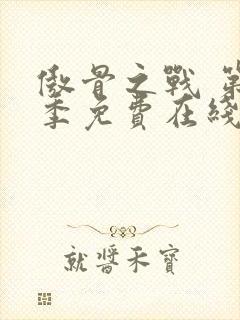 傲骨之戰 第
季免費在綫
就醬禾寶